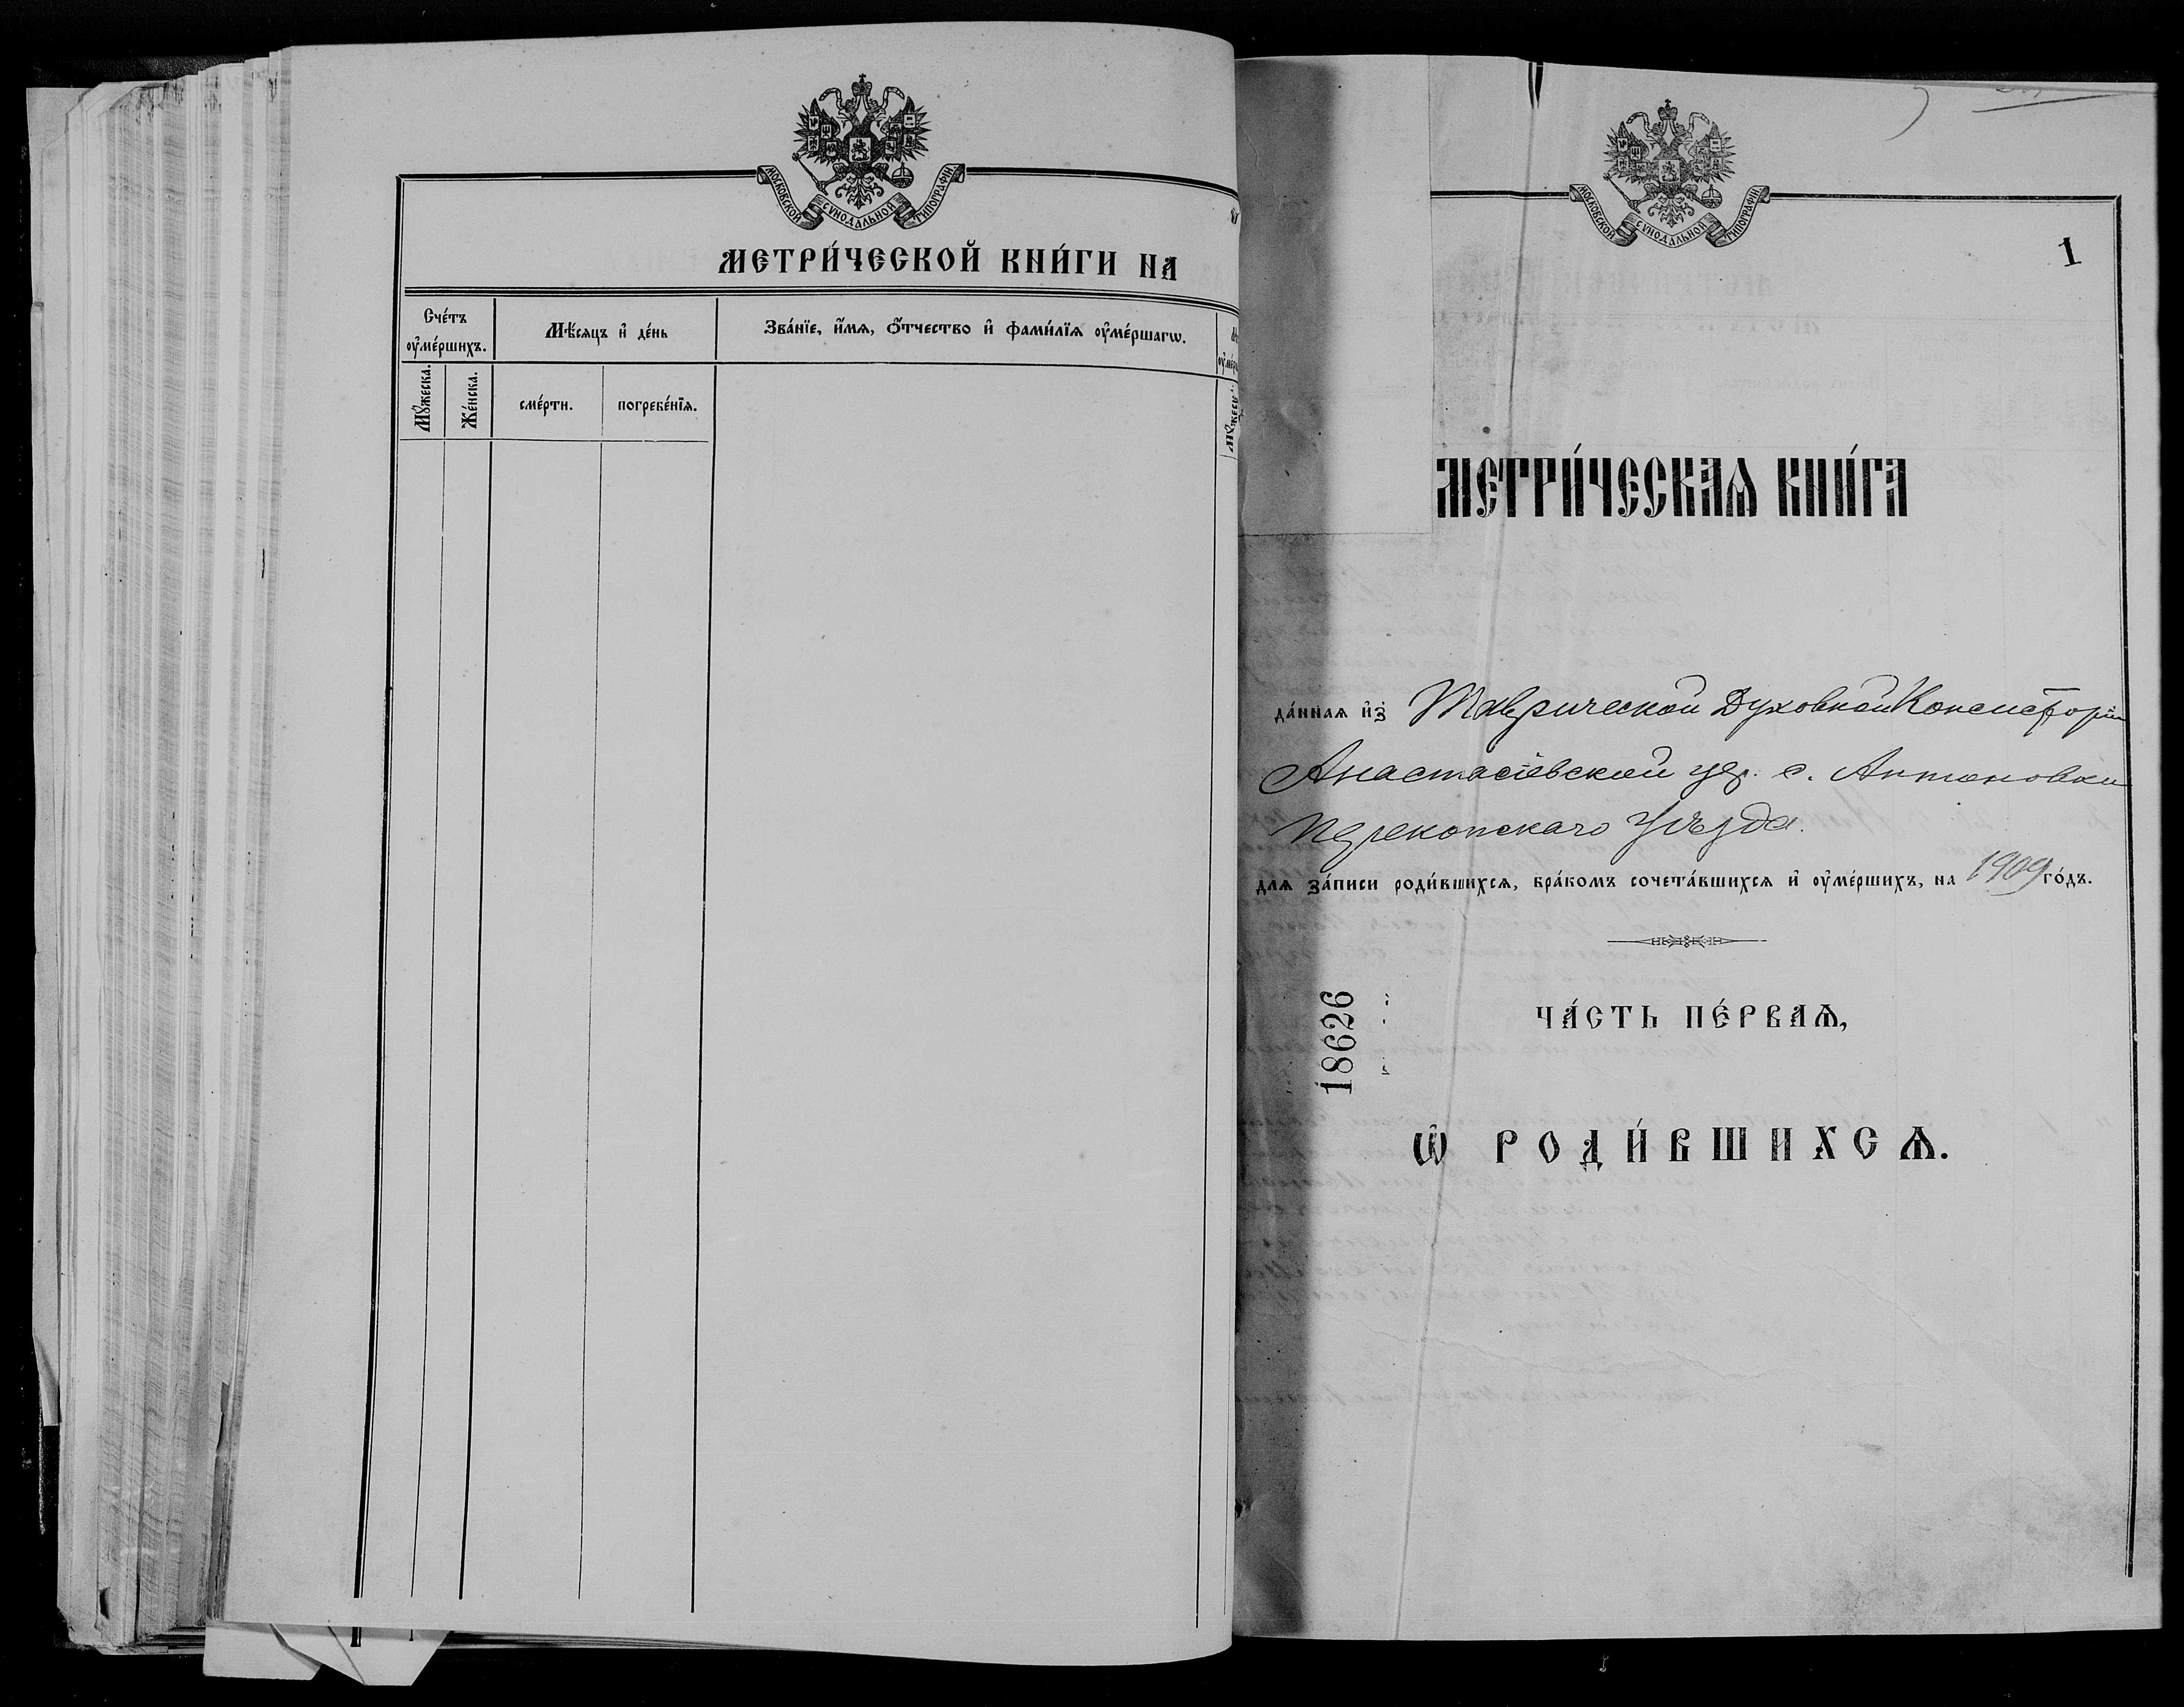 МОСКОВСКОЙ СѴНОДАЛЬНОЙ ТИПОГРАФІИ.
МЕТРИ́ЧЕСКОЙ КНИ́ГИ НА
Сче́тъ оу҆ме́ршихъ.
Мѣ́сяцъ и҆ де́нь
Зва́нїе, и҆́мѧ, ѻ҆́тчество и҆ фами́лїѧ оу҆ме́ршагѡ.
Мꙋ́жеска.
Же́нска.
сме́рти.
погребе́нїѧ.
МОСКОВСКОЙ СѴНОДАЛЬНОЙ ТИПОГРАФІИ.
1
МЕТРИ́ЧЕСКАѦ КНИ́ГА
да́ннаѧ и҆з̾ Таврической Духовной Консисторіи
Анастасіевской цер. с. Антоновки
Перекопскаго уѣзда.
длѧ за́писи роди́вшихсѧ, бра́комъ сочета́вшихсѧ и҆ оу҆ме́ршихъ, на 1909 го́дъ.
18626
ЧА́СТЬ ПЕ́РВАѦ,
Ѡ҆ РОДИ́ВШИХСѦ.